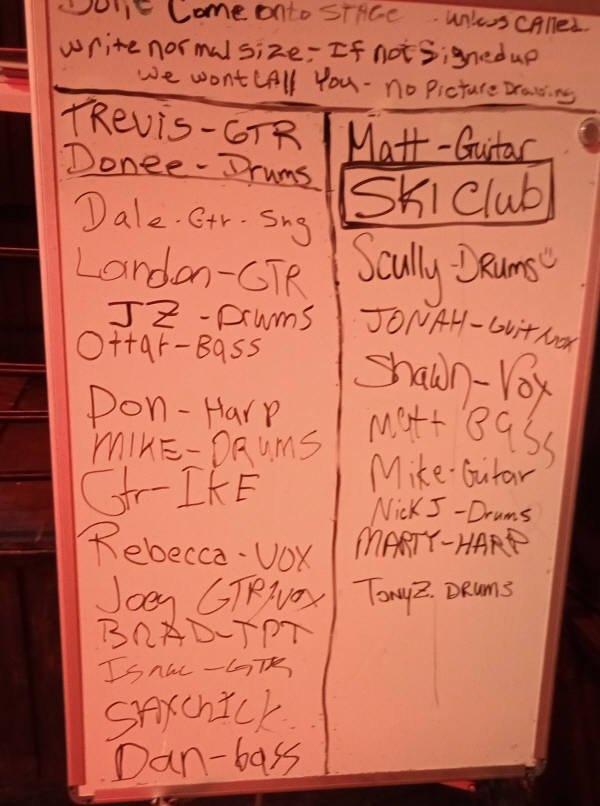 Don't Come onto STAGE - unless CAlled
write normal size - If not Signed up
we wont CAll You - no Picture Drawing
TREVIS - GTR
Donee - Drums
Dale - Gtr - Sng
London - GTR
JZ - Drums
Ottar - Bass
Don - Harp
MIKE - DRUMS
Gtr - IKE
Rebecca - VOX
Joey GTR/vox
BRAD - TPT
Isaac - GTR
SAXCHICK
Dan - bass
Matt - Guitar
SKI Club
Scully - DRums
JONAH - Guit/Vox
Shawn - Vox
Matt BASS
Mike - Guitar
Nick J - Drums
MARTY - HARP
Tony Z. DRUMS